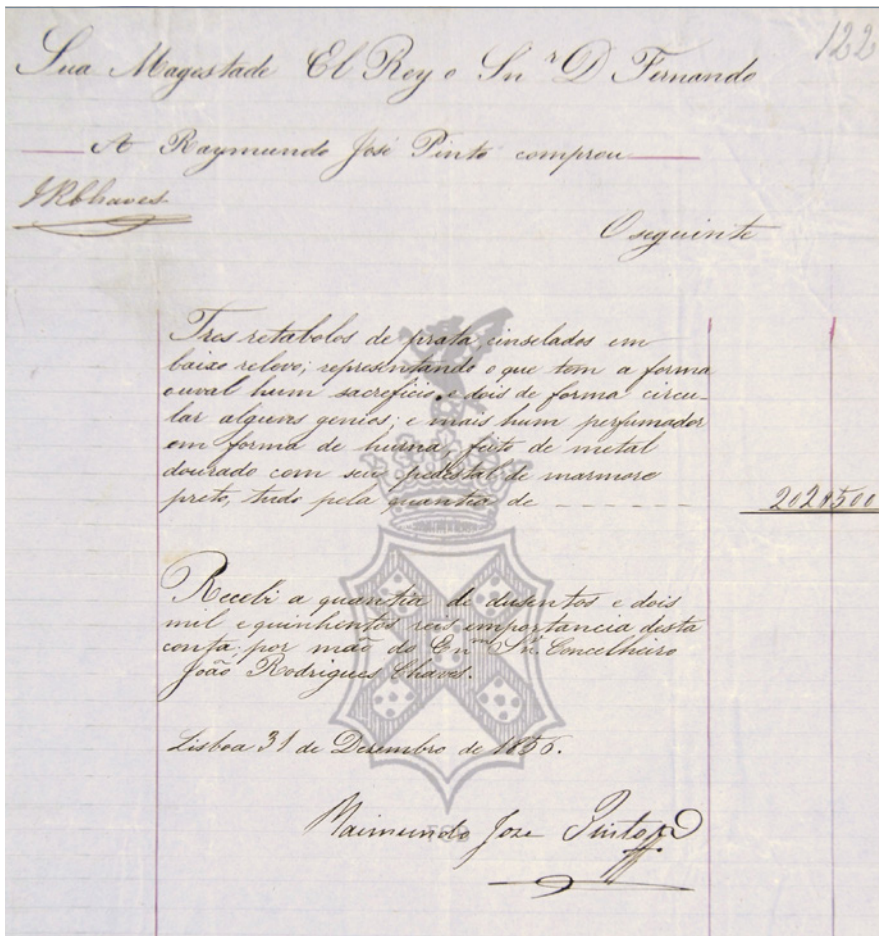 122
Sua Magestade El Rey o Snr D Fernando
A Raymundo José Pinto comprou
JRChaves
O seguinte
Tres retabolos de prata cinselados em
baixo relevo; representando o que tem a forma
ouval hum sacreficio, e dois de forma circu-
lar alguns genios; e mais hum perfumador
em forma de hurna, feito de metal
dourado com seu pedestal de marmore
preto, tudo pela quantia de - - - - - - - 202$500
Recebi a quantia de dusentos e dois
mil e quinhentos reis importancia desta
conta, por mão do Enmo Snr. Concelheiro
João Rodrigues Chaves.
Lisboa 31 de Desembro de 1856.
Raimundo Joze Pinto